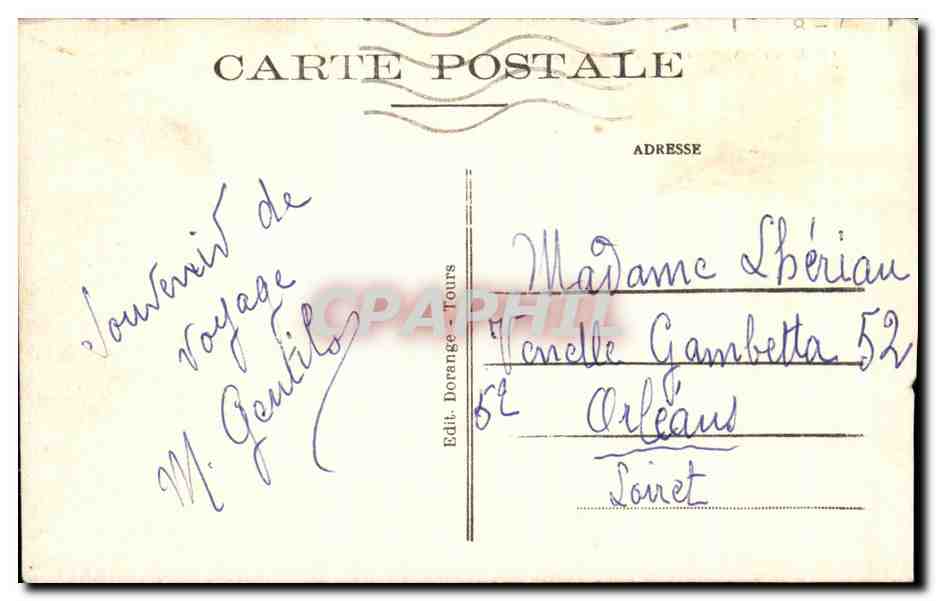 CARTE POSTALE
ADRESSE
Souvenir de
voyage
M. Gentils
Edit. Dorange - Tours
CPAPHIL
Madame Lhériau
Venelle Gambetta 52
52
Orléans
Loiret